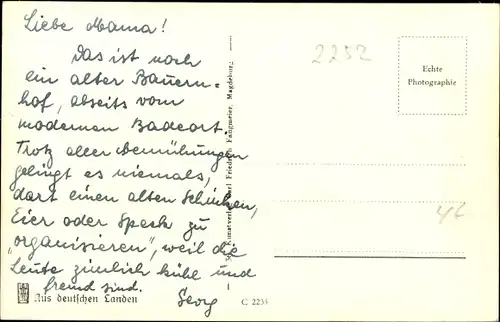 Liebe Mama!
Das ist noch
ein alter Bauern-
hof, abseits vom
modernen Badeort.
Trotz aller Bemühungen
gelingt es niemals,
dort einen alten Schinken,
Eier oder Speck zu
„organisieren", weil die
Leute ziemlich kühl und
fremd sind.
Georg
Aus deutschen Landen
C 2234
Kunstverlag Carl Friedrich Fangmeier, Magdeburg
2252
Echte
Photographie